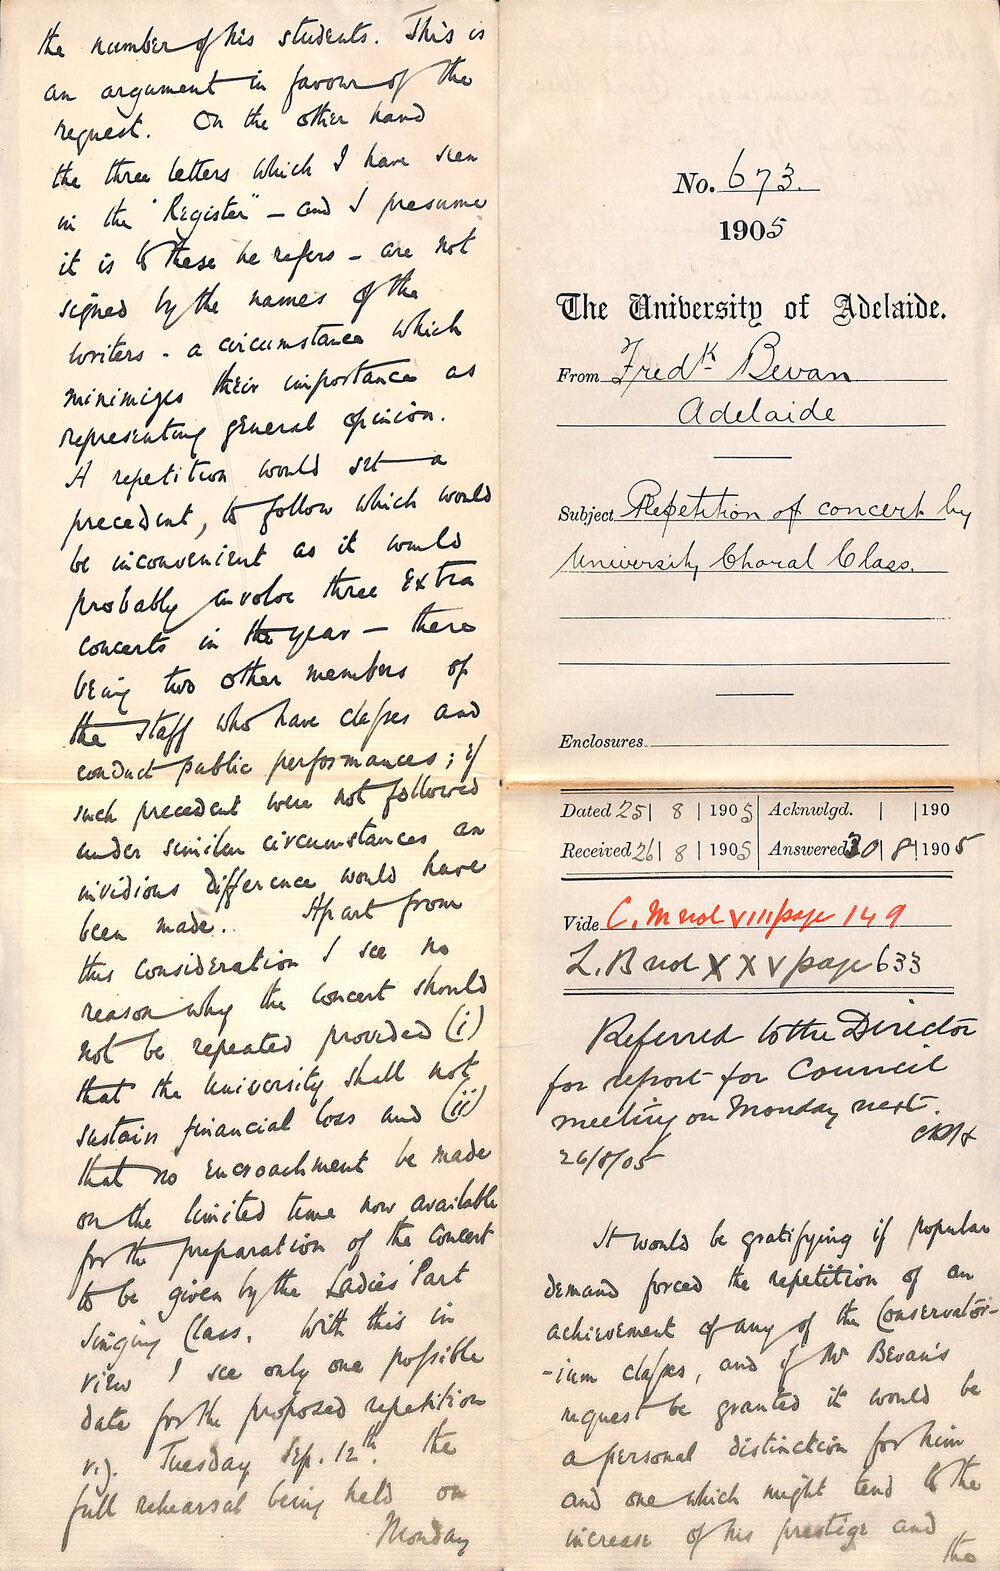 No. 673.
1905
The University of Adelaide.
From Fredk Bevan
Adelaide
Subject Repetition of concert by
University Choral Class.
Enclosures
Dated 25 | 8 | 1905 Acknwlgd. | | 190
Received 26 | 8 | 1905 Answered 30 | 8 | 1905
Vide C. M vol VIII page 149
L. B vol XXV page 633
Referred to the Director
for report for Council
meeting on Monday next.
26/8/05
It would be gratifying if popular
demand forced the repetition of an
achievement of any of the Conservator-
-ium classes, and if Mr Bevan's
request be granted it would be
a personal distinction for him
and one which might tend to the
increase of his prestige and
the
the number of his students. This is
an argument in favour of the
request. On the other hand
the three letters which I have seen
in the "Register" - and I presume
it is to these he refers - are not
signed by the names of the
writers - a circumstance which
minimizes their importance as
representing general opinion.
A repetition would set a
precedent, to follow which would
be inconvenient as it would
probably involve three extra
concerts in the year - there
being two other members of
the staff who have classes and
conduct public performances; if
such precedent were not followed
under similar circumstances an
invidious difference would have
been made. Apart from
this consideration I see no
reason why the concert should
not be repeated provided (i)
that the University shall not
sustain financial loss and (ii)
that no encroachment be made
on the limited time now available
for the preparation of the concert
to be given by the Ladies' Part
Singing Class. With this in
view I see only one possible
date for the proposed repetition
viz. Tuesday Sep. 12th. the
full rehearsal being held on
Monday